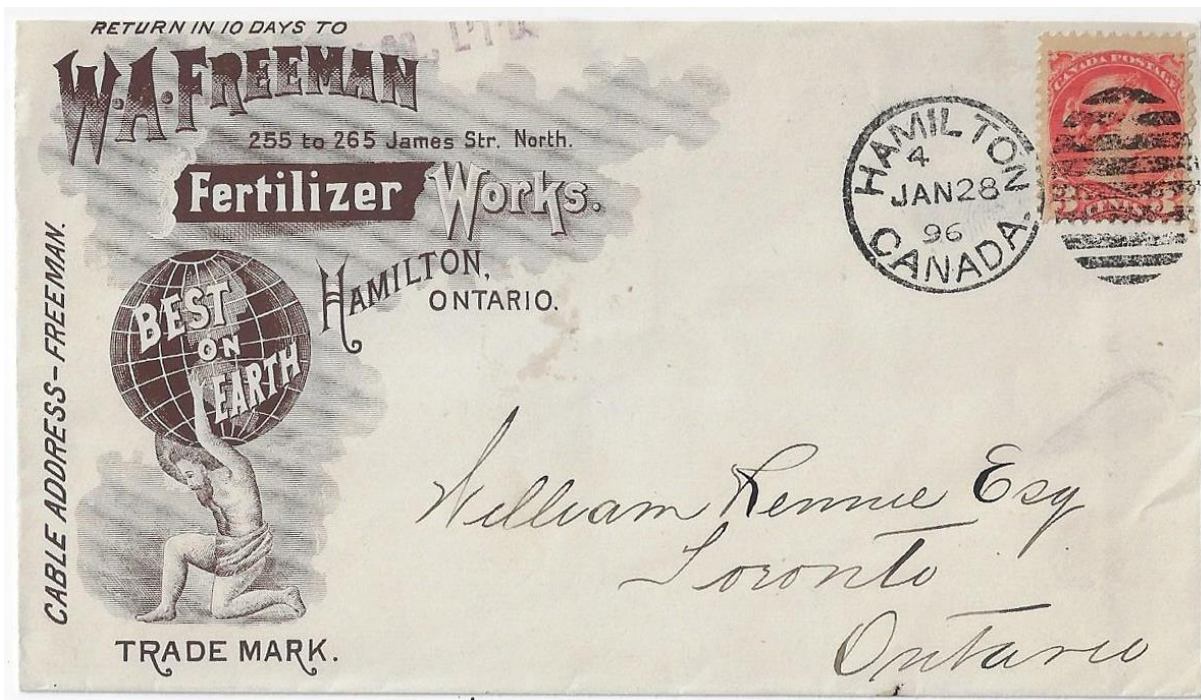 RETURN IN 10 DAYS TO
W. A. FREEMAN
255 to 265 James Str. North.
Fertilizer Works.
HAMILTON,
ONTARIO.
BEST
ON
EARTH
CABLE ADDRESS - FREEMAN.
TRADE MARK.
LTD
CANADA POSTAGE
HAMILTON
4
JAN 28
96
CANADA.
William Rennie Esq
Toronto
Ontario